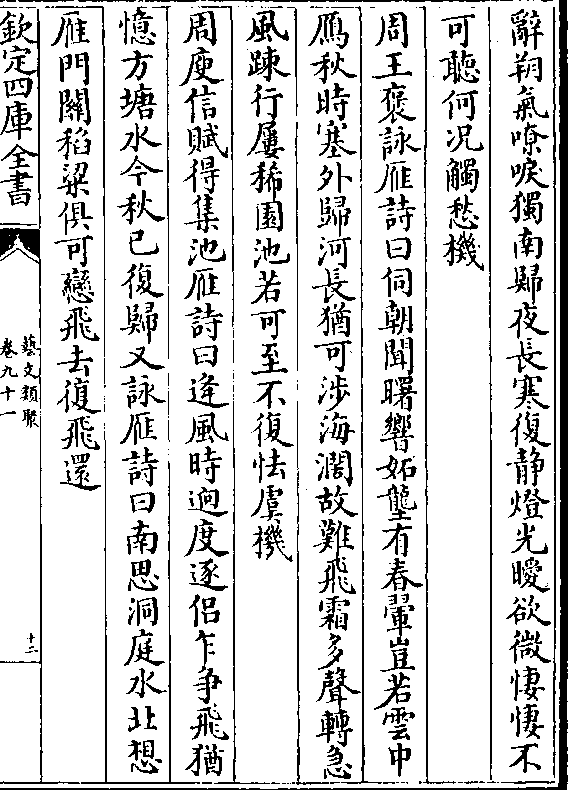 辭朔氣嘹唳獨南歸夜長寒復静燈光曖欲微悽悽不
可聽何况觸愁機
周王褒詠雁詩曰伺朝聞曙響妬壟有春翬豈若雲中
鴈秋時塞外歸河長猶可涉海濶故難飛霜多聲轉急
風踈行屢稀園池若可至不復怯虞機
周庾信賦得集池雁詩曰逢風時逈度逐侣乍争飛猶
憶方塘水今秋已復歸又詠雁詩曰南思洞庭水北想
雁門關稻粱俱可戀飛去復飛還
欽定四庫全書
藝文類聚
卷九十一
十二